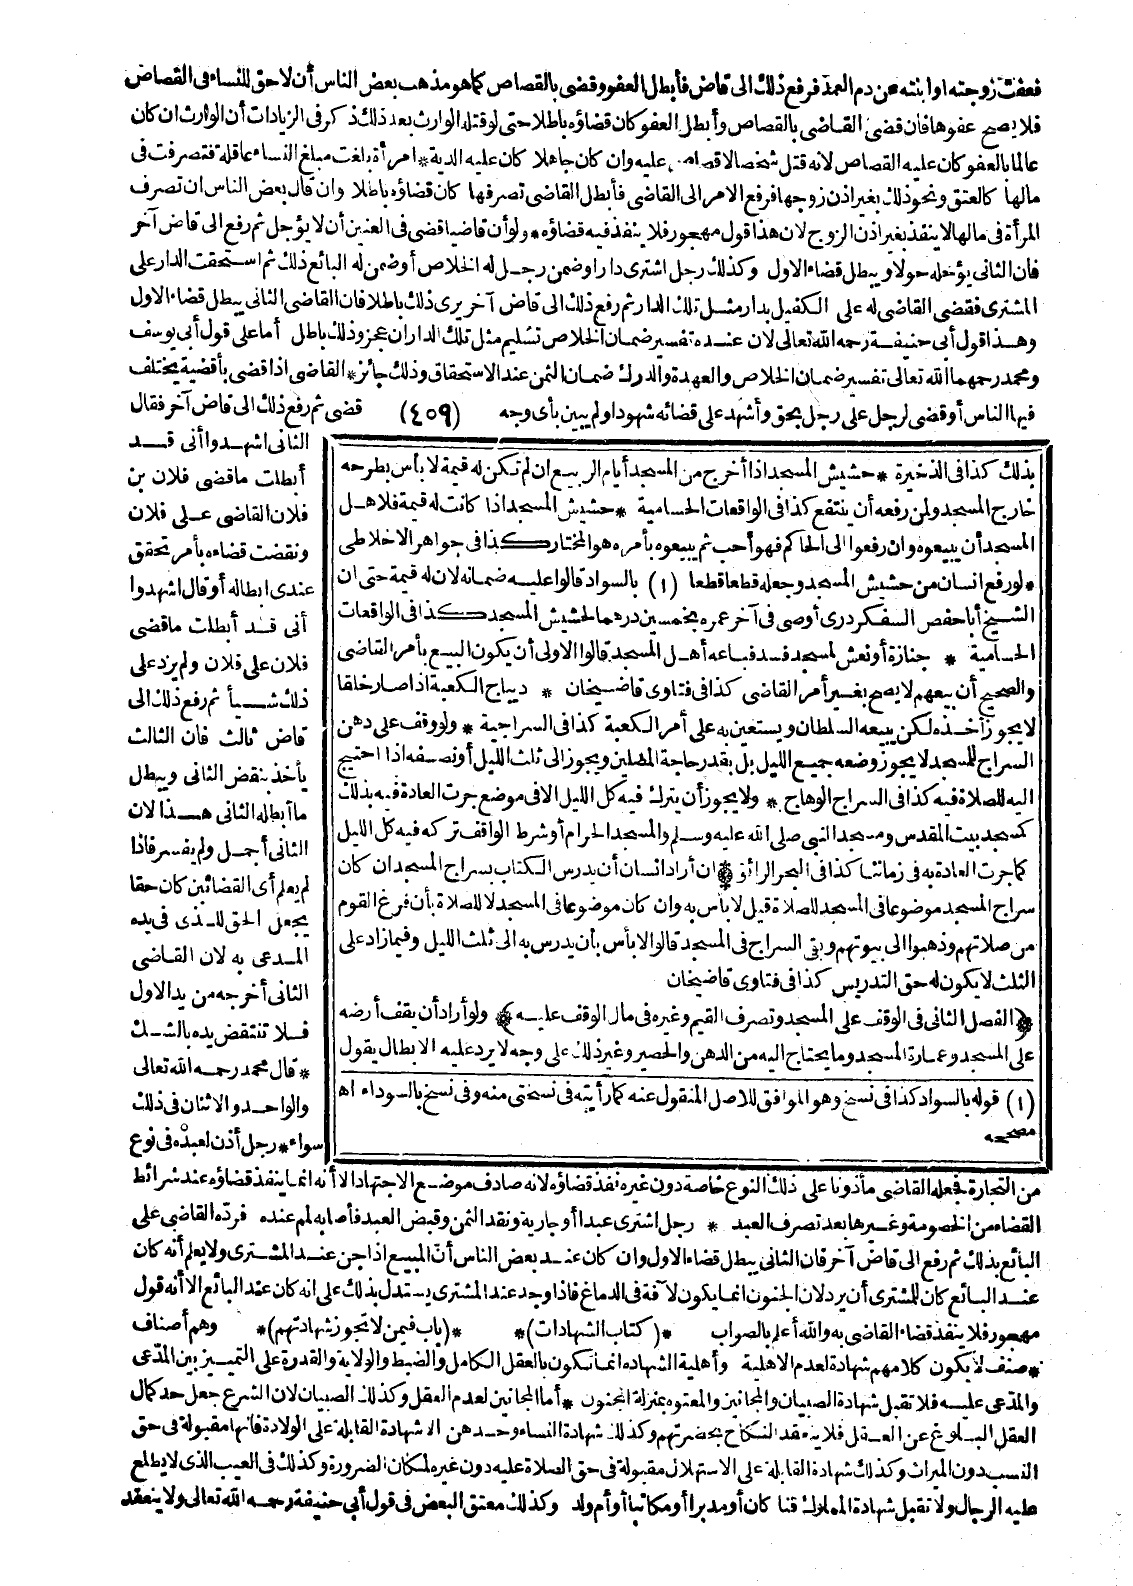 فعفت زوجته او ابنته عن دم العمد فرفع ذلك الى قاض فأبطل العفو وقضى بالقصاص كما هو مذهب بعض الناس أن لا حق للنساء فى القصاص
فلا يصح عفوها فان قضى القاضى بالقصاص وأبطل العفو كان قضاؤه باطلا حتى لو قتله الوارث بعد ذلك ذكر فى الزيادات أن الوارث ان كان
عالما بالعفو كان عليه القصاص لانه قتل شخصا لا قصاص عليه وان كان جاهلا كان عليه الدية * امرأة بلغت مبلغ النساء عاقلة فتصرفت فى
مالها كالعتق ونحو ذلك بغير اذن زوجها فرفع الامر الى القاضى فأبطل القاضى تصرفها كان قضاؤه باطلا وان قال بعض الناس ان تصرف
المرأة فى مالها لا ينفذ بغير اذن الزوج لان هذا قول مهجور فلا ينفذ فيه قضاؤه * ولو أن قاضيا قضى فى العنين أن لا يؤجل ثم رفع الى قاض آخر
فان الثانى يؤجله حولا ويبطل قضاء الاول وكذلك رجل اشترى دارا وضمن رجل له الخلاص أو ضمن له البائع ذلك ثم استحقت الدار على
المشترى فقضى القاضى له على الكفيل بدار مثل تلك الدار ثم رفع ذلك الى قاض آخر يرى ذلك باطلا فان القاضى الثانى يبطل قضاء الاول
وهذا قول أبى حنيفة رحمه الله تعالى لان عنده تفسير ضمان الخلاص تسليم مثل تلك الدار ان عجز وذلك باطل أما على قول أبى يوسف
ومحمد رحمهما الله تعالى تفسير ضمان الخلاص والعهدة والدرك ضمان الثمن عند الاستحقاق وذلك جائز * القاضى اذا قضى بأقضية يختلف
فيها الناس أو قضى لرجل على رجل بحق وأشهد على قضائه شهودا ولم يبين بأى وجه (٤٥٩) قضى ثم رفع ذلك الى قاض آخر فقال
الثانى اشهدوا أنى قد
أبطلت ما قضى فلان بن
فلان القاضى على فلان
ونقضت قضاءه بأمر تحقق
عندى ابطاله أو قال اشهدوا
أنى قد أبطلت ما قضى
فلان على فلان ولم يزد على
ذلك شيأ ثم رفع ذلك الى
قاض ثالث فان الثالث
يأخذ بنقض الثانى ويبطل
ما أبطله الثانى هذا لان
الثانى أجمل ولم يفسر فاذا
لم يعلم أى القضائين كان حقا
يجعل الحق للذى فى يده
المدعى به لان القاضى
الثانى أخرجه من يد الاول
فلا تنتقض يده بالشك
* قال محمد رحمه الله تعالى
والواحد والاثنان فى ذلك
سواء * رجل أذن لعبده فى نوع
بذلك كذا فى الذخيرة * حشيش المسجد اذا أخرج من المسجد أيام الربيع ان لم تكن له قيمة لا بأس بطرحه
خارج المسجد ولمن رفعه أن ينتفع كذا فى الواقعات الحسامية * حشيش المسجد اذا كانت له قيمة فلاهل
المسجد أن يبيعوه وان رفعوا الى الحاكم فهو أحب ثم يبيعوه بأمره هو المختار كذا فى جواهر الاخلاطى
* لو رفع انسان من حشيش المسجد وجعله قطعا قطعا (١) بالسواد قالوا عليه ضمانه لان له قيمة حتى ان
الشيخ أبا حفص السفكردرى أوصى فى آخر عمره بخمسين درهما لحشيش المسجد كذا فى الواقعات
الحسامية * جنازة أو نعش لمسجد فسد فباعه أهل المسجد قالوا الاولى أن يكون البيع بأمر القاضى
والصحيح أن بيعهم لا يصح بغير أمر القاضى كذا فى فتاوى قاضيخان * ديباج الكعبة اذا صار خلقا
لا يجوز أخذه لكن يبيعه السلطان ويستعين به على أمر الكعبة كذا فى السراجية * ولو وقف على دهن
السراج للمسجد لا يجوز وضعه جميع الليل بل بقدر حاجة المصلين ويجوز الى ثلث الليل أو نصفه اذا احتيج
اليه للصلاة فيه كذا فى السراج الوهاج * ولا يجوز أن يترك فيه كل الليل الا فى موضع جرت العادة فيه بذلك
كمسجد بيت المقدس ومسجد النبى صلى الله عليه وسلم والمسجد الحرام أو شرط الواقف تركه فيه كل الليل
كما جرت العادة به فى زماننا كذا فى البحر الرائق * ان أراد انسان أن يدرس الكتاب بسراج المسجد ان كان
سراج المسجد موضوعا فى المسجد للصلاة قيل لا بأس به وان كان موضوعا فى المسجد لا للصلاة بأن فرغ القوم
من صلاتهم وذهبوا الى بيوتهم وبقى السراج فى المسجد قالوا لا بأس بأن يدرس به الى ثلث الليل وفيما زاد على
الثلث لا يكون له حق التدريس كذا فى فتاوى قاضيخان
﴿الفصل الثانى فى الوقف على المسجد وتصرف القيم وغيره فى مال الوقف عليه﴾ ولو أراد أن يقف أرضه
على المسجد وعمارة المسجد وما يحتاج اليه من الدهن والحصير وغير ذلك على وجه لا يرد عليه الابطال يقول
(١) قوله بالسواد كذا فى نسخ وهو الموافق للاصل المنقول عنه كما رأيته فى نسختى منه وفى نسخ بالسوداء اه
مصححه
من التجارة فجعله القاضى مأذونا على ذلك النوع خاصة دون غيره نفذ قضاؤه لانه صادف موضع الاجتهاد الا أنه انما ينفذ قضاؤه عند شرائط
القضاء من الخصومة وغيرها بعد تصرف العبد * رجل اشترى عبدا أو جارية ونقد الثمن وقبض العبد فأصابه لمم عنده فرده القاضى على
البائع بذلك ثم رفع الى قاض آخر فان الثانى يبطل قضاء الاول وان كان عند بعض الناس أن المبيع اذا جن عند المشترى ولا يعلم أنه كان
عند البائع كان للمشترى أن يرد لان الجنون انما يكون لآفة فى الدماغ فاذا وجد عند المشترى يستدل بذلك على انه كان عند البائع الا أنه قول
مهجور فلا ينفذ قضاء القاضى به والله أعلم بالصواب *(كتاب الشهادات)* *(باب فيمن لا تجوز شهادتهم)* وهم أصناف
* صنف لا يكون كلامهم شهادة لعدم الاهلية وأهلية الشهادة انما تكون بالعقل الكامل والضبط والولاية والقدرة على التمييز بين المدعى
والمدعى عليه فلا تقبل شهادة الصبيان والمجانين والمعتوه بمنزلة المجنون * أما المجانين لعدم العقل وكذلك الصبيان لان الشرع جعل حد كمال
العقل البلوغ عن العقل فلا ينعقد النكاح بحضرتهم وكذلك شهادة النساء وحدهن الا شهادة القابلة على الولادة فانها مقبولة فى حق
النسب دون الميراث وكذلك شهادة القابلة على الاستهلال مقبولة فى حق الصلاة عليه دون غيره لمكان الضرورة وكذلك فى العيب الذى لا يطلع
عليه الرجال ولا تقبل شهادة المملوك قنا كان أو مدبرا أو مكاتبا أو أم ولد وكذلك معتق البعض فى قول أبى حنيفة رحمه الله تعالى ولا ينعقد